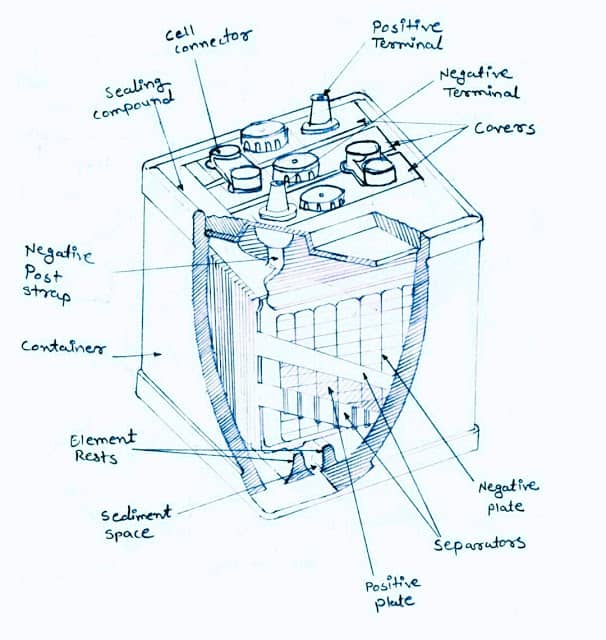 Cell
connector
Positive
Terminal
Negative
Terminal
Sealing
compound
Covers
Negative
Post
strap
Container
Element
Rests
Sediment
space
Negative
plate
Separators
Positive
plate